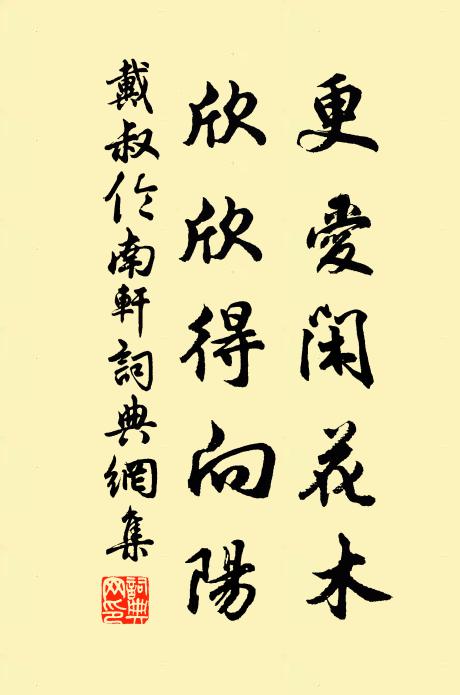 更愛閑花木
欣欣得向陽
戴叔伦南軒詞典網集
詞典网印